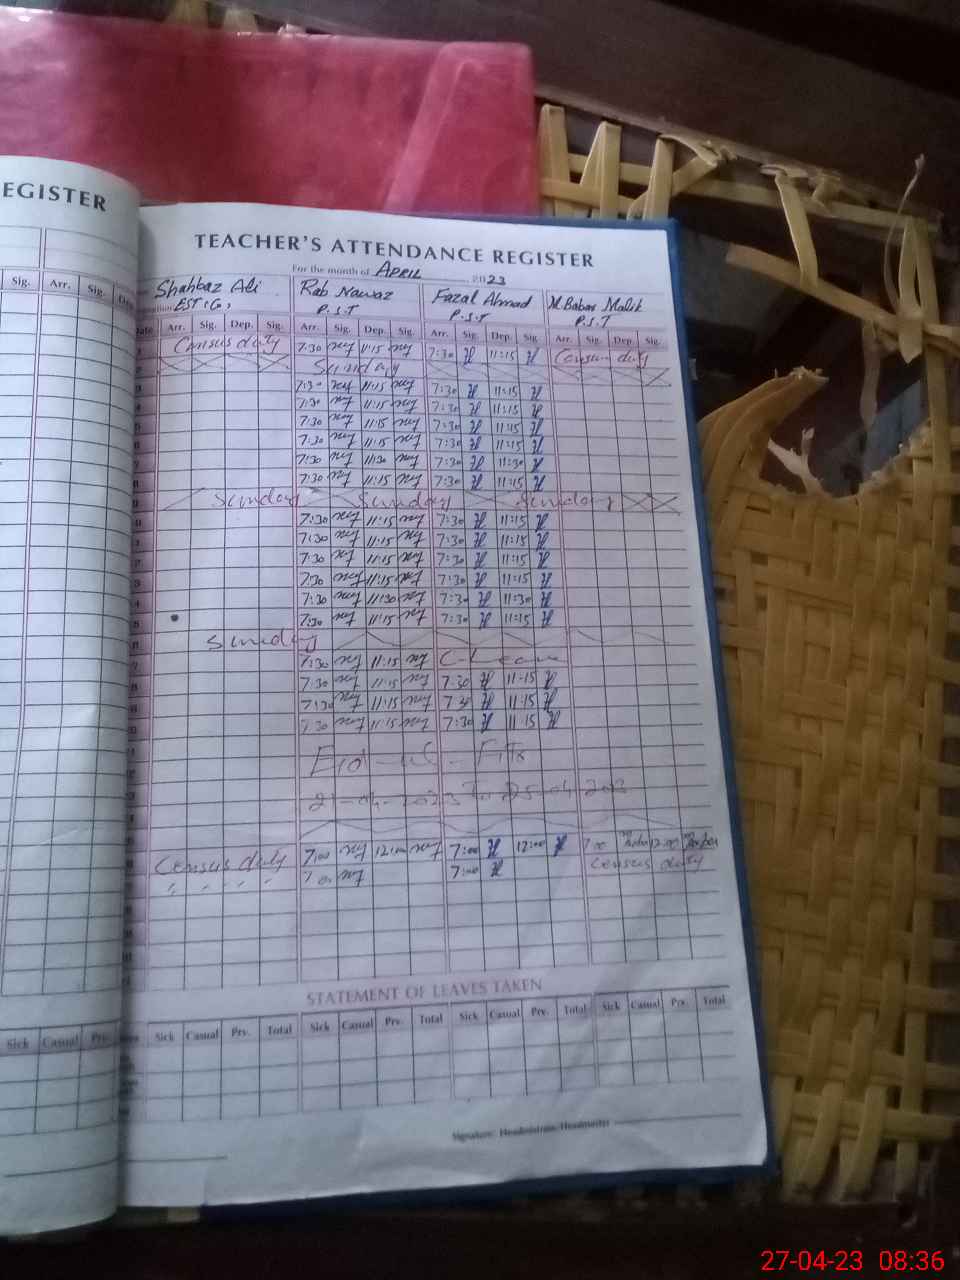 EGISTER
TEACHER'S ATTENDANCE REGISTER
For the month of April 2023
Shahbaz Ali Rab Nawaz Fazal Ahmad M. Babar Malik
EST(G) P.S.T P.S.T P.S.T
Sig. Arr. Sig. Arr. Sig. Dep. Sig. Arr. Sig. Dep. Sig. Arr. Sig. Dep. Sig. Arr. Sig. Dep. Sig.
Census duty 7:30 11:15 7:30 11:15 Census duty
Sunday
7:30 11:15 7:30 11:15
7:30 11:15 7:30 11:15
7:30 11:15 7:30 11:15
7:30 11:15 7:30 11:15
7:30 11:30 7:30 11:30
7:30 11:15 7:30 11:15
Sunday Sunday Sunday
7:30 11:15 7:30 11:15
7:30 11:15 7:30 11:15
7:30 11:15 7:30 11:15
7:30 11:15 7:30 11:15
7:30 11:30 7:30 11:30
7:30 11:15 7:30 11:15
Sunday
7:30 11:15 C-Leave
7:30 11:15 7:30 11:15
7:30 11:15 7:30 11:15
7:30 11:15 7:30 11:15
Eid-ul-Fitr
21-04-2023 To 25-04-2023
Census duty 7:00 12:00 7:00 12:00 7:00 12:00
" " " " " 7:00 7:00 Census duty
STATEMENT OF LEAVES TAKEN
Sick Casual Prv. Sick Casual Prv. Total Sick Casual Prv. Total Sick Casual Prv. Total Sick Casual Prv. Total
Signature: Headmistress/Headmaster
27-04-23 08:36